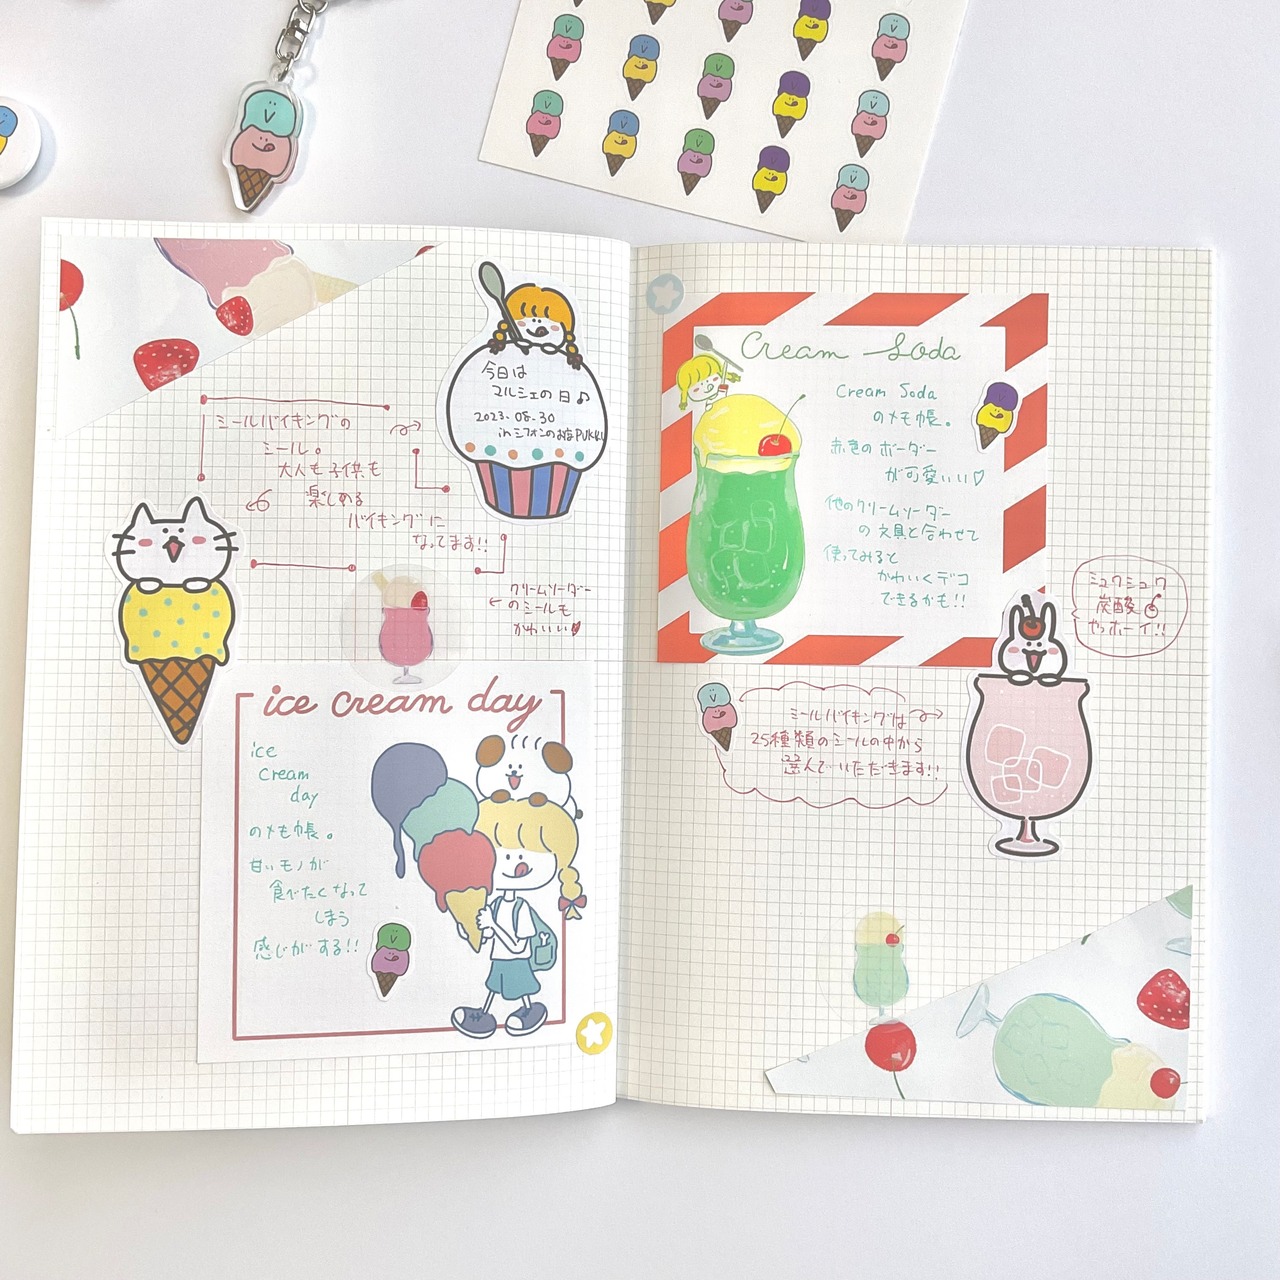 今日は
マルシェの日♪
2023.08.30
in シフォンのお店PUKKU
ミールバイキングの
ミール。
大人も子供も
楽しめる
バイキングに
なってます!!
クリームソーダー
←のミールも
かわいい♥
ice cream day
ice
cream
day
のメモ帳。
甘いモノが
食べたくなって
しまう
感じがする!!
Cream Soda
Cream Soda
のメモ帳。
赤白のボーダー
が可愛いい♡
他のクリームソーダー
の文具と合わせて
使ってみると
かわいくデコ
できるかも!!
シュワシュワ
炭酸
やっホーイ!!
ミールバイキングは
25種類のミールの中から
選んでいただきます!!